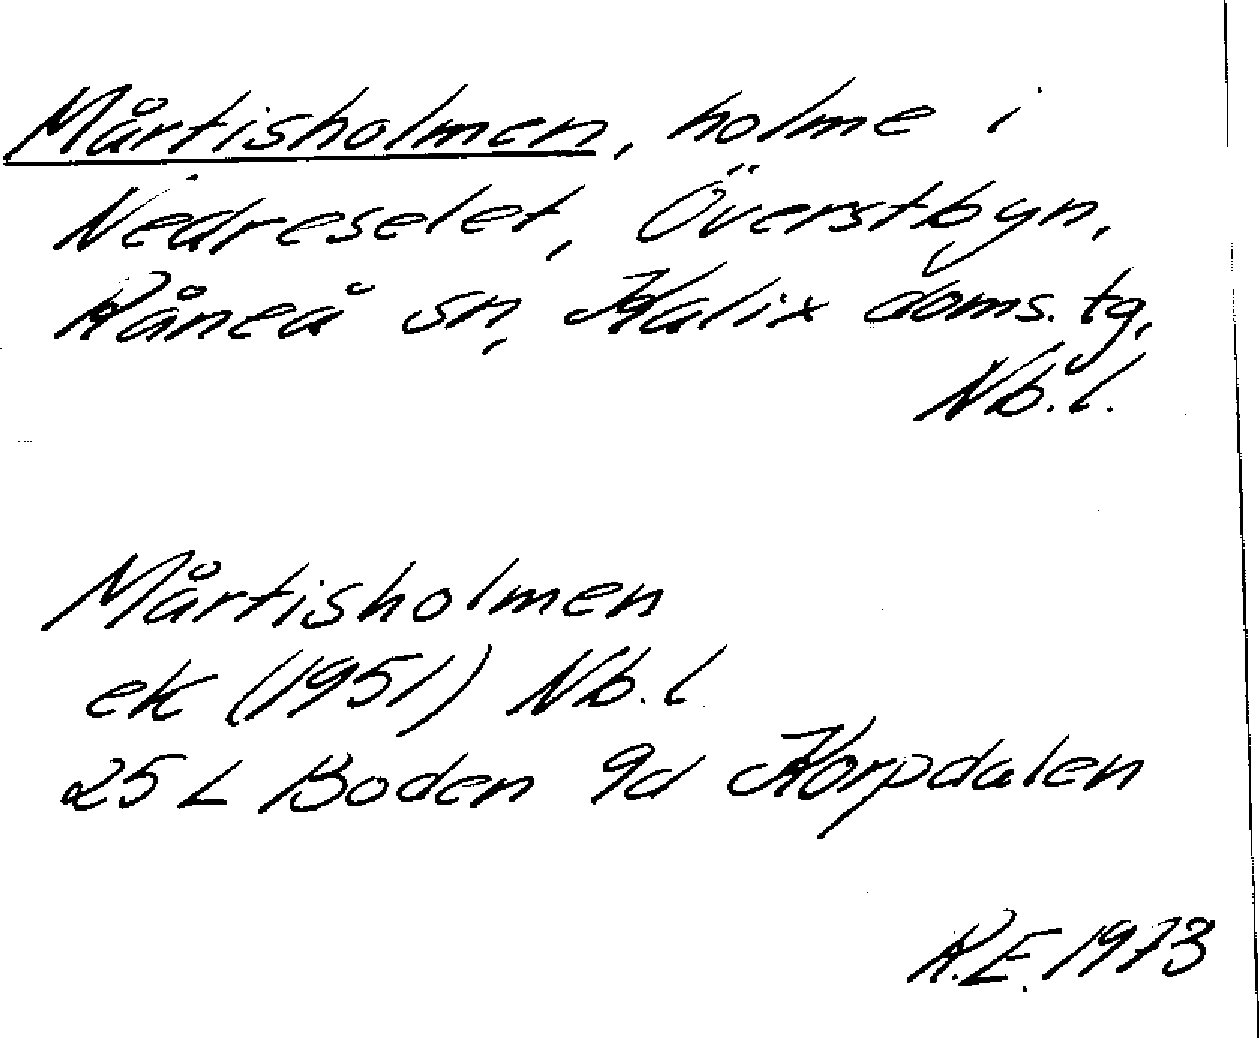 Mårtisholmen, holme i
Nedreselet, Överstbyn,
Råneå sn, Kalix doms. tg,
Nb. l.
Mårtisholmen
ek (1951) Nb. l
25 L Boden 9d Korpdalen
R.E. 1973